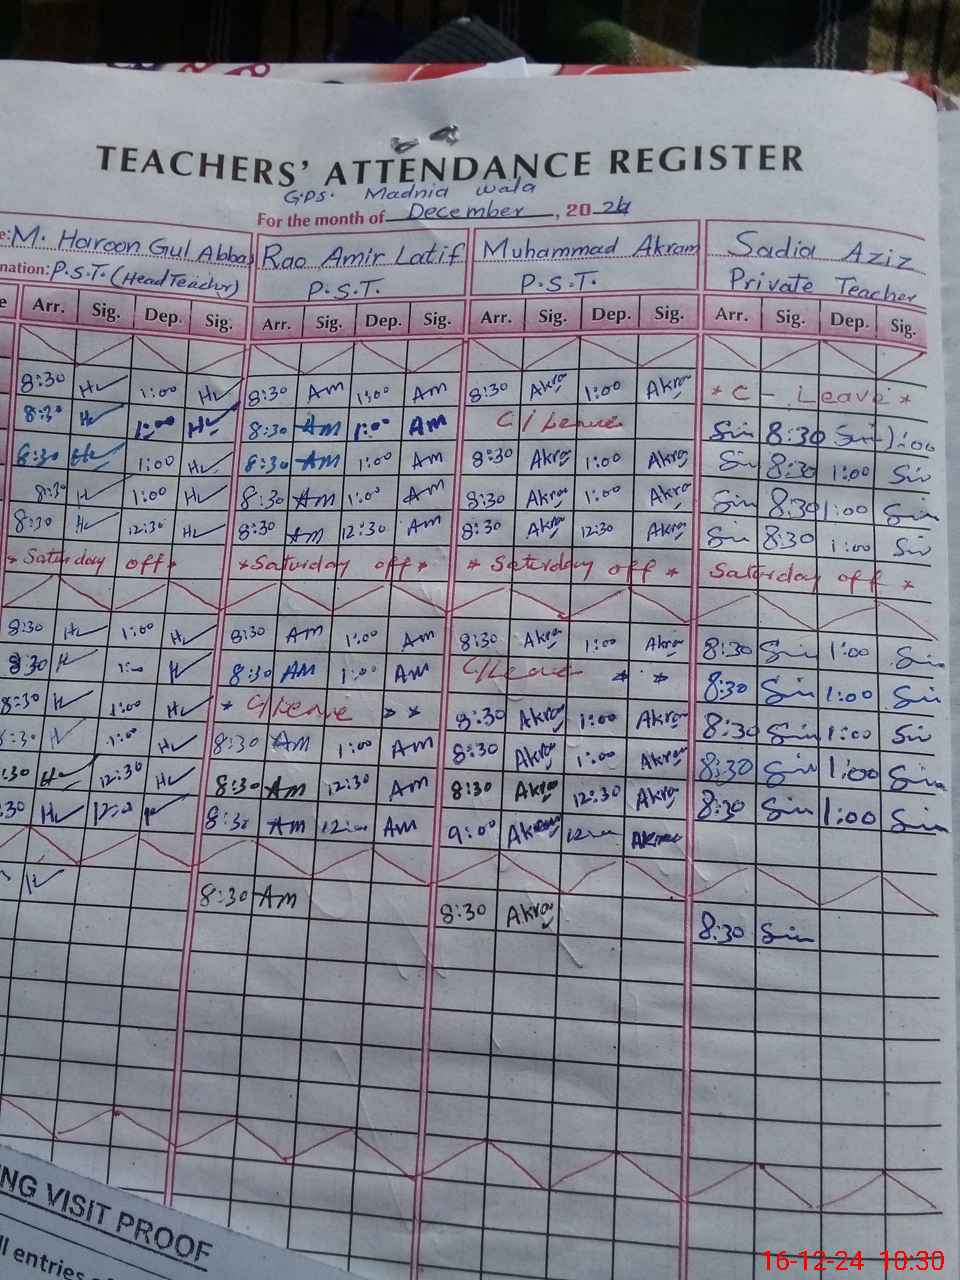 TEACHERS' ATTENDANCE REGISTER
G.P.S. Madnia wala
For the month of December, 2024
e: M. Haroon Gul Abbas Rao Amir Latif Muhammad Akram Sadia Aziz
nation: P.S.T. (Head Teacher) P.S.T. P.S.T. Private Teacher
e Arr. Sig. Dep. Sig. Arr. Sig. Dep. Sig. Arr. Sig. Dep. Sig. Arr. Sig. Dep. Sig.
8:30 1:00 8:30 Am 1:00 Am 8:30 Akra 1:00 Akra * C - Leave *
8:30 1:00 8:30 Am 1:00 Am C/Leave 8:30 1:00
8:30 1:00 8:30 Am 1:00 Am 8:30 Akra 1:00 Akra 8:30 1:00
8:30 1:00 8:30 Am 1:00 Am 8:30 Akra 1:00 Akra 8:30 1:00
8:30 12:30 8:30 Am 12:30 Am 8:30 Akra 12:30 Akra 8:30 1:00
* Saturday off * * Saturday off * * Saturday off * Saturday off *
8:30 1:00 8:30 Am 1:00 Am 8:30 Akra 1:00 Akra 8:30 1:00
8:30 1:00 8:30 Am 1:00 Am C/Leave * * 8:30 1:00
8:30 1:00 * C/Leave * * 8:30 Akra 1:00 Akra 8:30 1:00
8:30 1:00 8:30 Am 1:00 Am 8:30 Akra 1:00 Akra 8:30 1:00
:30 12:30 8:30 Am 12:30 Am 8:30 Akra 12:30 Akra 8:30 1:00
:30 8:30 Am 12:00 Am 9:00 Akram
8:30 Am 8:30 Akra 8:30
NG VISIT PROOF
ll entries
16-12-24 10:30